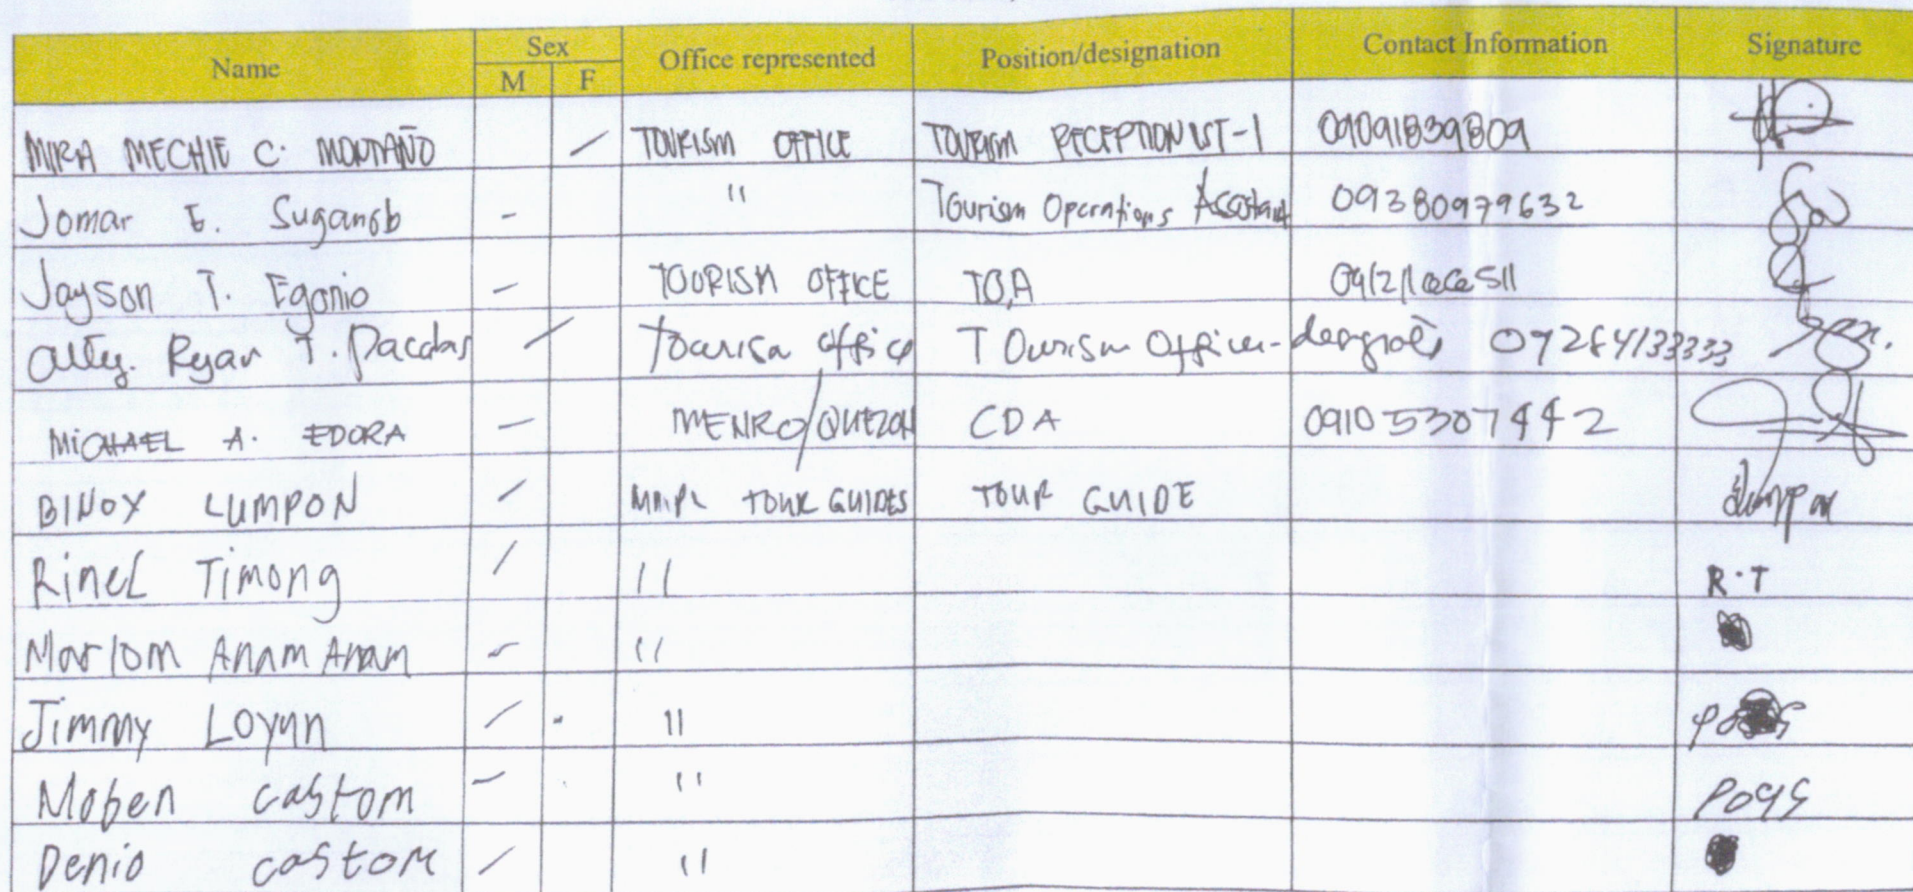 Name Sex Office represented Position/designation Contact Information Signature
M F
MIRA MECHIE C. MONTAÑO / TOURISM OFFICE TOURISM RECEPTIONIST-1 09091839809
Jomar E. Suganob - " Tourism Operations Assistant 09380979632
Jayson T. Egonio - TOURISM OFFICE TOA
Atty. Ryan T. Dacalos / Tourism Office Tourism Officer-designate
MICHAEL A. EDORA - MENRO/QUEZON CDA 09105307442
BINOY LUMPON / TOUR GUIDES TOUR GUIDE
Rinel Timong / " R.T
Marlom Anam Anam - "
Jimmy Loyun / "
Moben castom - " Pogs
Denio castom / "